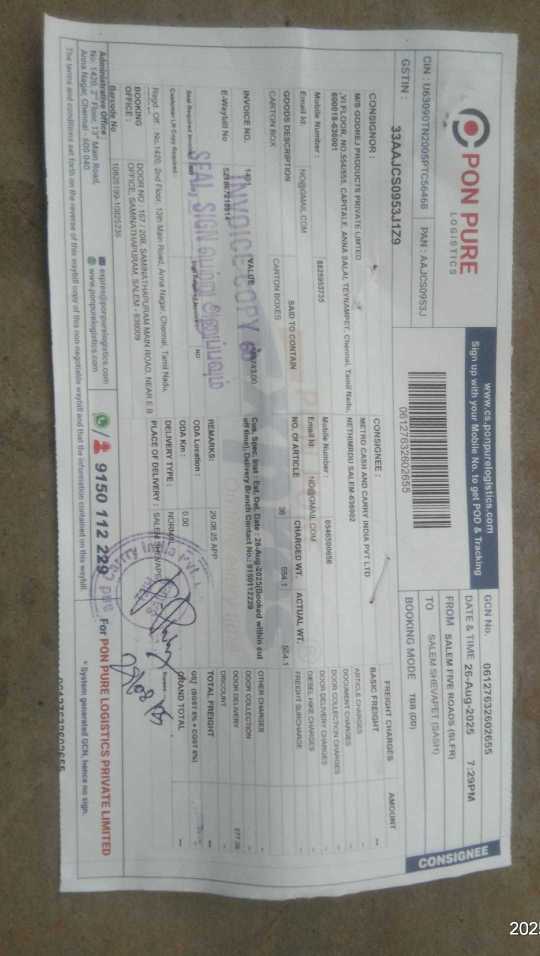 PON PURE
LOGISTICS
www.cs.ponpurelogistics.com
Sign up with your Mobile No. to get POD & Tracking
CIN : U63090TN2005PTC56468 PAN : AAJCS0953J
GSTIN : 33AAJCS0953J1Z9
06127632602655
GCN No. 06127632602655
DATE & TIME 26-Aug-2025 7:29PM
FROM SALEM FIVE ROADS (SLFR)
TO SALEM SHEVAPET (SASH)
BOOKING MODE TBB (DD)
CONSIGNEE
CONSIGNOR :
M/S GODREJ PRODUCTS PRIVATE LIMITED
,VI FLOOR, NO.554/555, CAPITALE, ANNA SALAI, TEYNAMPET, Chennai, Tamil Nadu,
600018-636001
Mobile Number : 8825953735
Email Id: NO@GMAIL.COM
CONSIGNEE :
METRO CASH AND CARRY INDIA PVT LTD
NETHIMEDU SALEM-636002
Mobile Number :
Email Id: NO@GMAIL.COM
GOODS DESCRIPTION SAID TO CONTAIN NO. OF ARTICLE CHARGED WT. ACTUAL WT.
CARTON BOX CARTON BOXES 36 554.1 554.1
INVOICE NO. VALUE
E-Waybill No
INVOICE COPY
SEAL, SIGN
Seal Required
NO
Customer I/D Copy Required
Cus. Spec. Inst : Est. Del. Date : 28-Aug-2025(Booked within cut
off time), Delivery Branch Contact No.: 9150112229
REMARKS: 29.08.25 APP
ODA Location :
ODA Km : 0.00
DELIVERY TYPE : NORMAL
PLACE OF DELIVERY : SALEM SHEVAPET
FREIGHT CHARGES AMOUNT
BASIC FREIGHT **
ARTICLE CHARGES
DOCUMENT CHARGES
DOOR COLLECTION CHARGES
DOOR DELIVERY CHARGES
DIESEL HIKE CHARGES
FREIGHT SURCHARGE
OTHER CHARGES
DOOR COLLECTION
DOOR DELIVERY
DISCOUNT
TOTAL FREIGHT **
GRAND TOTAL **
Regd. Off. No: 1420, 2nd Floor, 13th Main Road, Anna Nagar, Chennai, Tamil Nadu,
BOOKING DOOR NO :167 / 208, SAMINATHAPURAM MAIN ROAD, NEAR E B
OFFICE : OFFICE, SAMINATHAPURAM, SALEM - 636009
Barcode No 10825199-10825235
Administrative Office :
No: 1420, 2nd Floor, 13th Main Road,
Anna Nagar, Chennai - 600 040
expres@ponpurelogistics.com
www.ponpurelogistics.com
9150 112 229
For PON PURE LOGISTICS PRIVATE LIMITED
* System generated GCN, hence no sign.
The terms and conditions set forth on the reverse of this waybill copy of this non-negotiable waybill and that the information contained on this waybill.
06127632602655